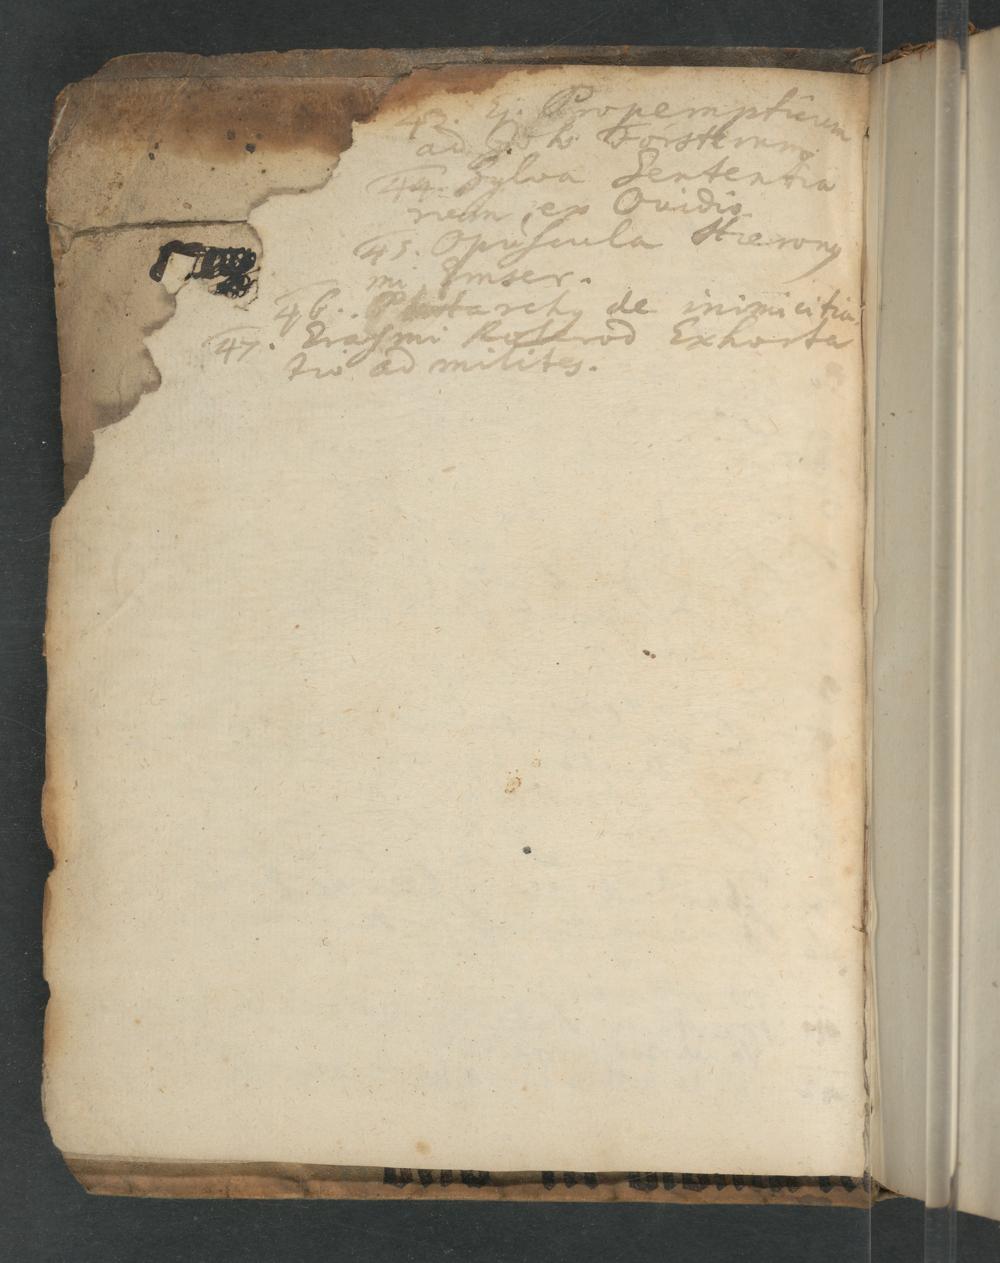 43. Ej. Propempticum
ad Joh. Försterum.
44. Sylva Sententia
rum, ex Ovidio.
45. Opuscula Hierony
mi Emser.
46. Plutarchq de inimicitia.
47. Erasmi Roterod Exhorta
tio ad milites.